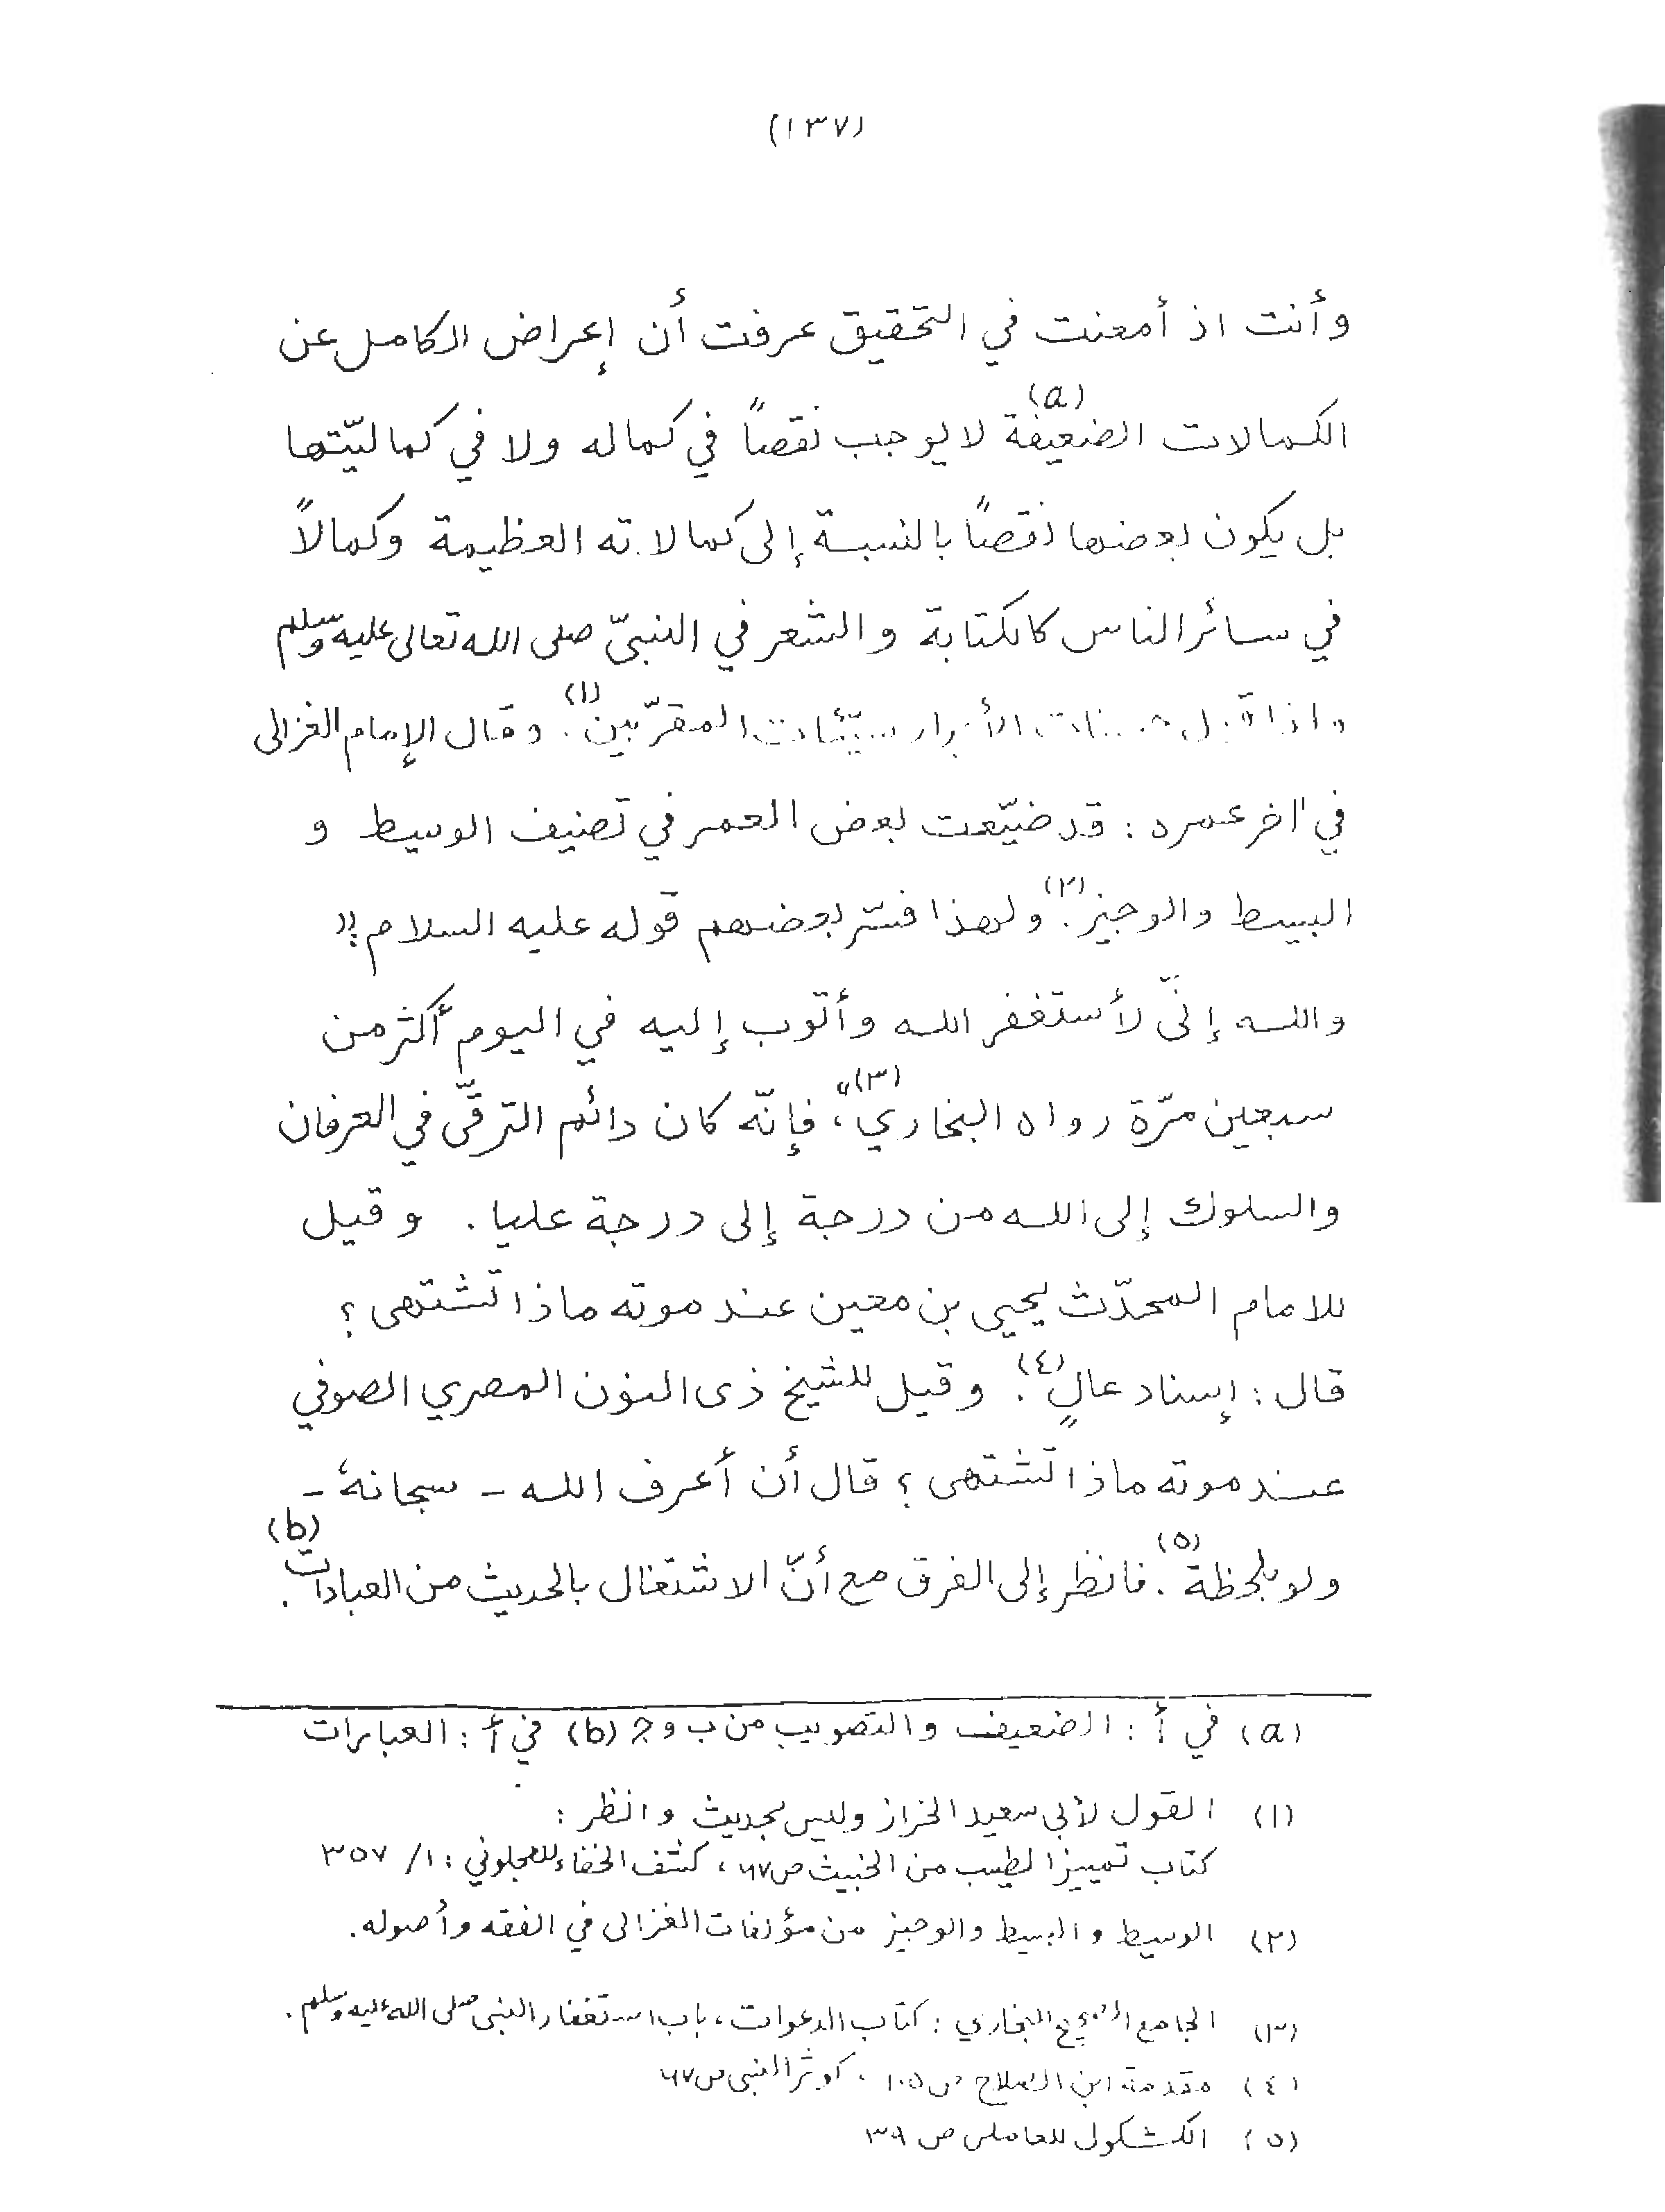 (١٣٧)
وأنت اذ أمعنت في التحقيق عرفت أن إعراض الكامل عن
الكمالات الضعيفة (a) لا يوجب نقصاً في كماله ولا في كماليّتها
بل يكون بعضها نقصاً بالنسبة إلى كمالاته العظيمة وكمالاً
في سائر الناس كالكتابة والشعر في النبيّ صلى الله تعالى عليه وسلم
واذا قيل حسنات الأبرار سيّئات المقرّبين (١). وقال الإمام الغزالى
في اٰخر عمره : قد ضيّعت بعض العمر في تصنيف الوسيط و
البسيط والوجيز (٢). ولهذا فسّر بعضهم قوله عليه السلام : "
والله إنّى لأستغفر الله وأتوب إليه في اليوم أكثر من
سبعين مرّة رواه البخاري" (٣)، فإنّه كان دائم الترقّى في العرفان
والسلوك إلى الله من درجة إلى درجة عليا . وقيل
للامام المحدّث يحيى بن معين عند موته ماذا تشتهى ؟
قال : إسناد عالٍ (٤). وقيل للشيخ ذى النون المصري الصوفي
عند موته ماذا تشتهى ؟ قال أن أعرف الله - سبحانهٗ -
ولو بلحظة (٥). فانظر إلى الفرق مع أنّ الاشتغال بالحديث من العبادات (b).
(a) في أ : الضعيف والتصويب من ب وج (b) في أ : العبارات
(١) القول لأبي سعيد الخراز وليس بحديث وانظر :
كتاب تمييز الطيب من الخبيث ص ٦٧ ، كشف الخفاء للعجلوني : ١/ ٣٥٧
(٢) الوسيط والبسيط والوجيز من مؤلفات الغزالى في الفقه وأصوله.
(٣) الجامع الصحيح البخاري : كتاب الدعوات ، باب استغفار النبى صلى الله عليه وسلم .
(٤) مقدمة ابن الصلاح ص ١٠٥ ، كوثر النبى ص ٦٧
(٥) الكشكول للعاملى ص ٣٩